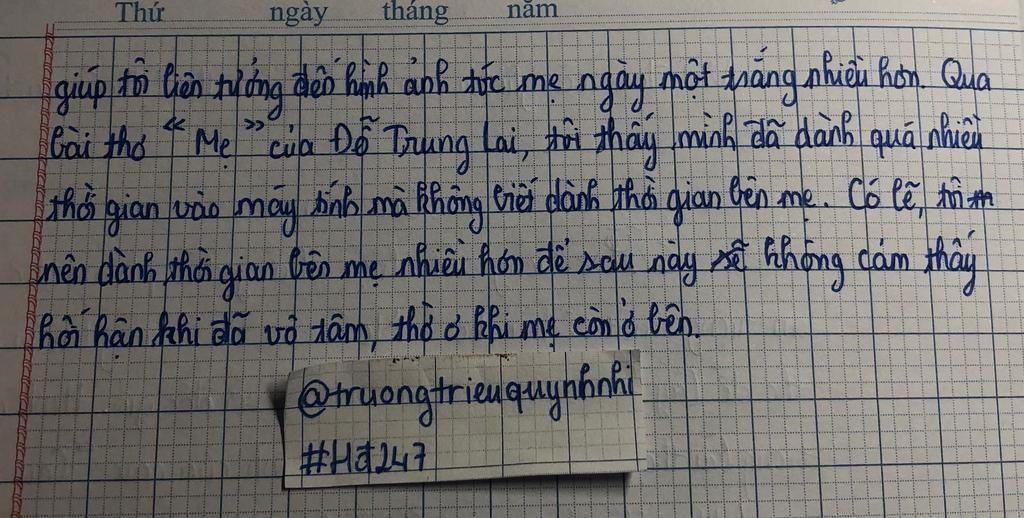 Thứ ngày tháng năm
giúp tôi liên tưởng đến hình ảnh tóc mẹ ngày một trắng nhiều hơn. Qua
bài thơ "Mẹ" của Đỗ Trung Lai, tôi thấy mình đã dành quá nhiều
thời gian vào máy tính mà không biết dành thời gian bên mẹ. Có lẽ, tôi
nên dành thời gian bên mẹ nhiều hơn để sau này sẽ không cảm thấy
hối hận khi đã vô tâm, thờ ơ khi mẹ còn ở bên.
@truongtrieuquynhnhi
#Hđ247